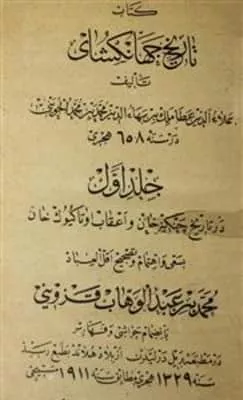 کتاب
تاریخ جهانگشای
تألیف
علاء الدین عطا ملک بن بهاء الدین محمد بن محمد الجوینی
در سنه ۶۵۸ هجری
جلد اول
در تاریخ چنگیز خان و اعقاب او تا کیوک خان
بسعی و اهتمام و تصحیح اقل العباد
محمد بن عبد الوهاب قزوینی
بانضمام حواشی و فهارس
در مطبعه بریل در لیدن از بلاد هلاند بطبع رسید
سنه ۱۳۲۹ هجری مطابق سنه ۱۹۱۱ مسیحی